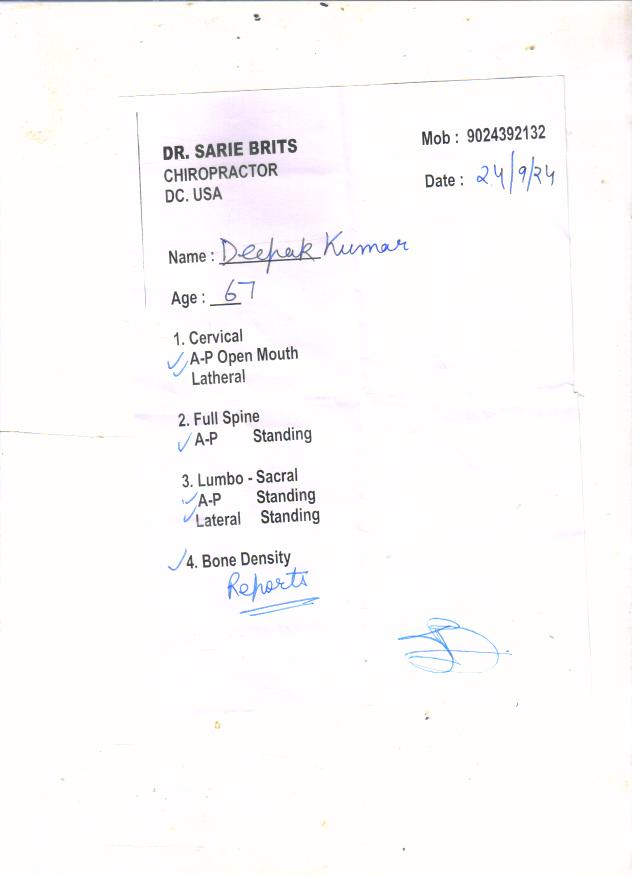 DR. SARIE BRITS
CHIROPRACTOR
DC. USA
Mob : 9024392132
Date : 24/9/24
Name : Deepak Kumar
Age : 67
1. Cervical
✓ A-P Open Mouth
✓ Latheral
2. Full Spine
✓ A-P Standing
3. Lumbo - Sacral
✓ A-P Standing
✓ Lateral Standing
✓ 4. Bone Density
Reports